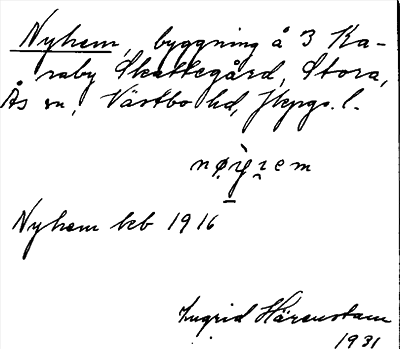 Nyhem, byggning å 3 Ka-
raby Skattegård, Stora,
Ås sn, Västbo hd, Jkpgs. l.
nø̀yr̥em
Nyhem kb 1916
Ingrid Härenstam
1931